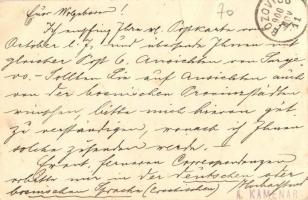 Euer Wolgeboren!
70
Ich empfing Ihre w. Postkarte vom
October l. J. und übersende Ihnen
gleicher Post 6 Ansichten von Saraje-
vo. - Sollten Sie auf Ansichten auch
von der bosnischen Provinzstädten
wünschen, bitte mich hievon gef.
zu verständigen, wonach ich Ihnen
solche zusenden werde. -
Event. ferneren Correspondenzen
erbitte mir in der deutschen oder
bosnischen Sprache (Croatischen)
A. KAMENAR